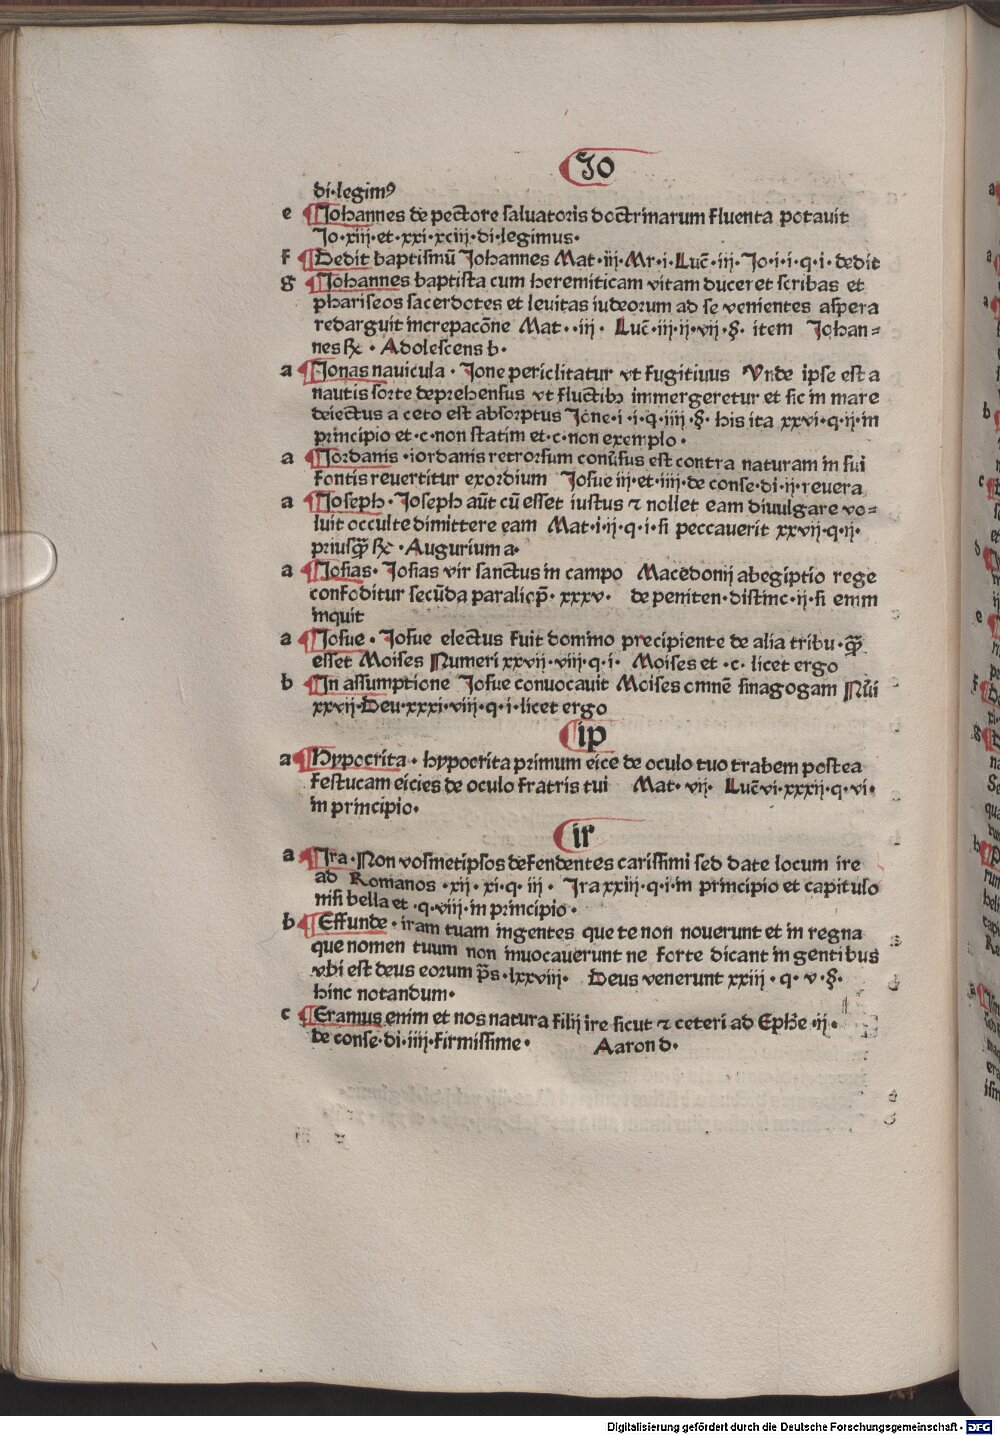 Jo
di·legimꝰ
e Johannes de pectore saluatoris doctrinarum fluenta potauit
Jo·xiij·et·xxi·xciij·di·legimus·
f Dedit baptismū Johannes Mat·iij·Mr·i·Luc̄·iij·Jo·i·i·q·i·dedit
g Johannes baptista cum heremiticam vitam duceret scribas et
phariseos sacerdotes et leuitas iudeorum ad se venientes aspera
redarguit increpacōne Mat··iij· Luc̄·iij·ij·vij·§· item Johan=
nes ℞c · Adolescens b·
a Jonas nauicula · Jone periclitatur vt fugitiuus Vnde ipse est a
nautis sorte deprehensus vt fluctibꝫ immergeretur et sic in mare
deiectus a ceto est absorptus Jone·i·i·q·iiij·§·his ita xxvi·q·ij·in
principio et·c·non statim et·c·non exemplo·
a Jordanis·iordanis retrorsum conūsus est contra naturam in sui
fontis reuertitur exordium Josue iij·et·iiij·de conse·di·ij·reuera
a Joseph·Joseph aūt cū esset iustus ⁊ nollet eam diuulgare vo=
luit occulte dimittere eam Mat·i·ij·q·i·si peccauerit xxvij·q·ij·
priusqꝫ̄ ℞c·Augurium a·
a Josias·Josias vir sanctus in campo Macedonij abegiptio rege
confoditur secūda paralipp̄·xxxv· de peniten·distinc·ij·si enim
inquit
a Josue·Josue electus fuit domino precipiente de alia tribu·qꝫ̄
esset Moises Numeri xxvij·viij·q·i· Moises et ·c· licet ergo
b In assumptione Josue conuocauit Moises omnē sinagogam Nūi
xxvij·Deu·xxxi·viij·q·i·licet ergo
ip
a Hypocrita·hypocrita primum eice de oculo tuo trabem postea
festucam eicies de oculo fratris tui Mat·vij· Luc̄vi·xxxij·q·vi·
in principio·
ir
a Ira·Non vosmetipsos defendentes carissimi sed date locum ire
ad Romanos ·xij· xi·q·iij· Ira xxiij·q·i·in principio et capitulo
nisi bella et ·q·viij·in principio·
b Effunde·iram tuam in gentes que te non nouerunt et in regna
que nomen tuum non inuocauerunt ne forte dicant in gentibus
vbi est deus eorum p̄s·lxxviij· Deus venerunt xxiij·q·v·§·
hinc notandum·
c Eramus enim et nos natura filij ire sicut ⁊ ceteri ad Ephe·ij·
de conse·di·iiij·firmissime· Aaron d·
Digitalisierung gefördert durch die Deutsche Forschungsgemeinschaft - DFG